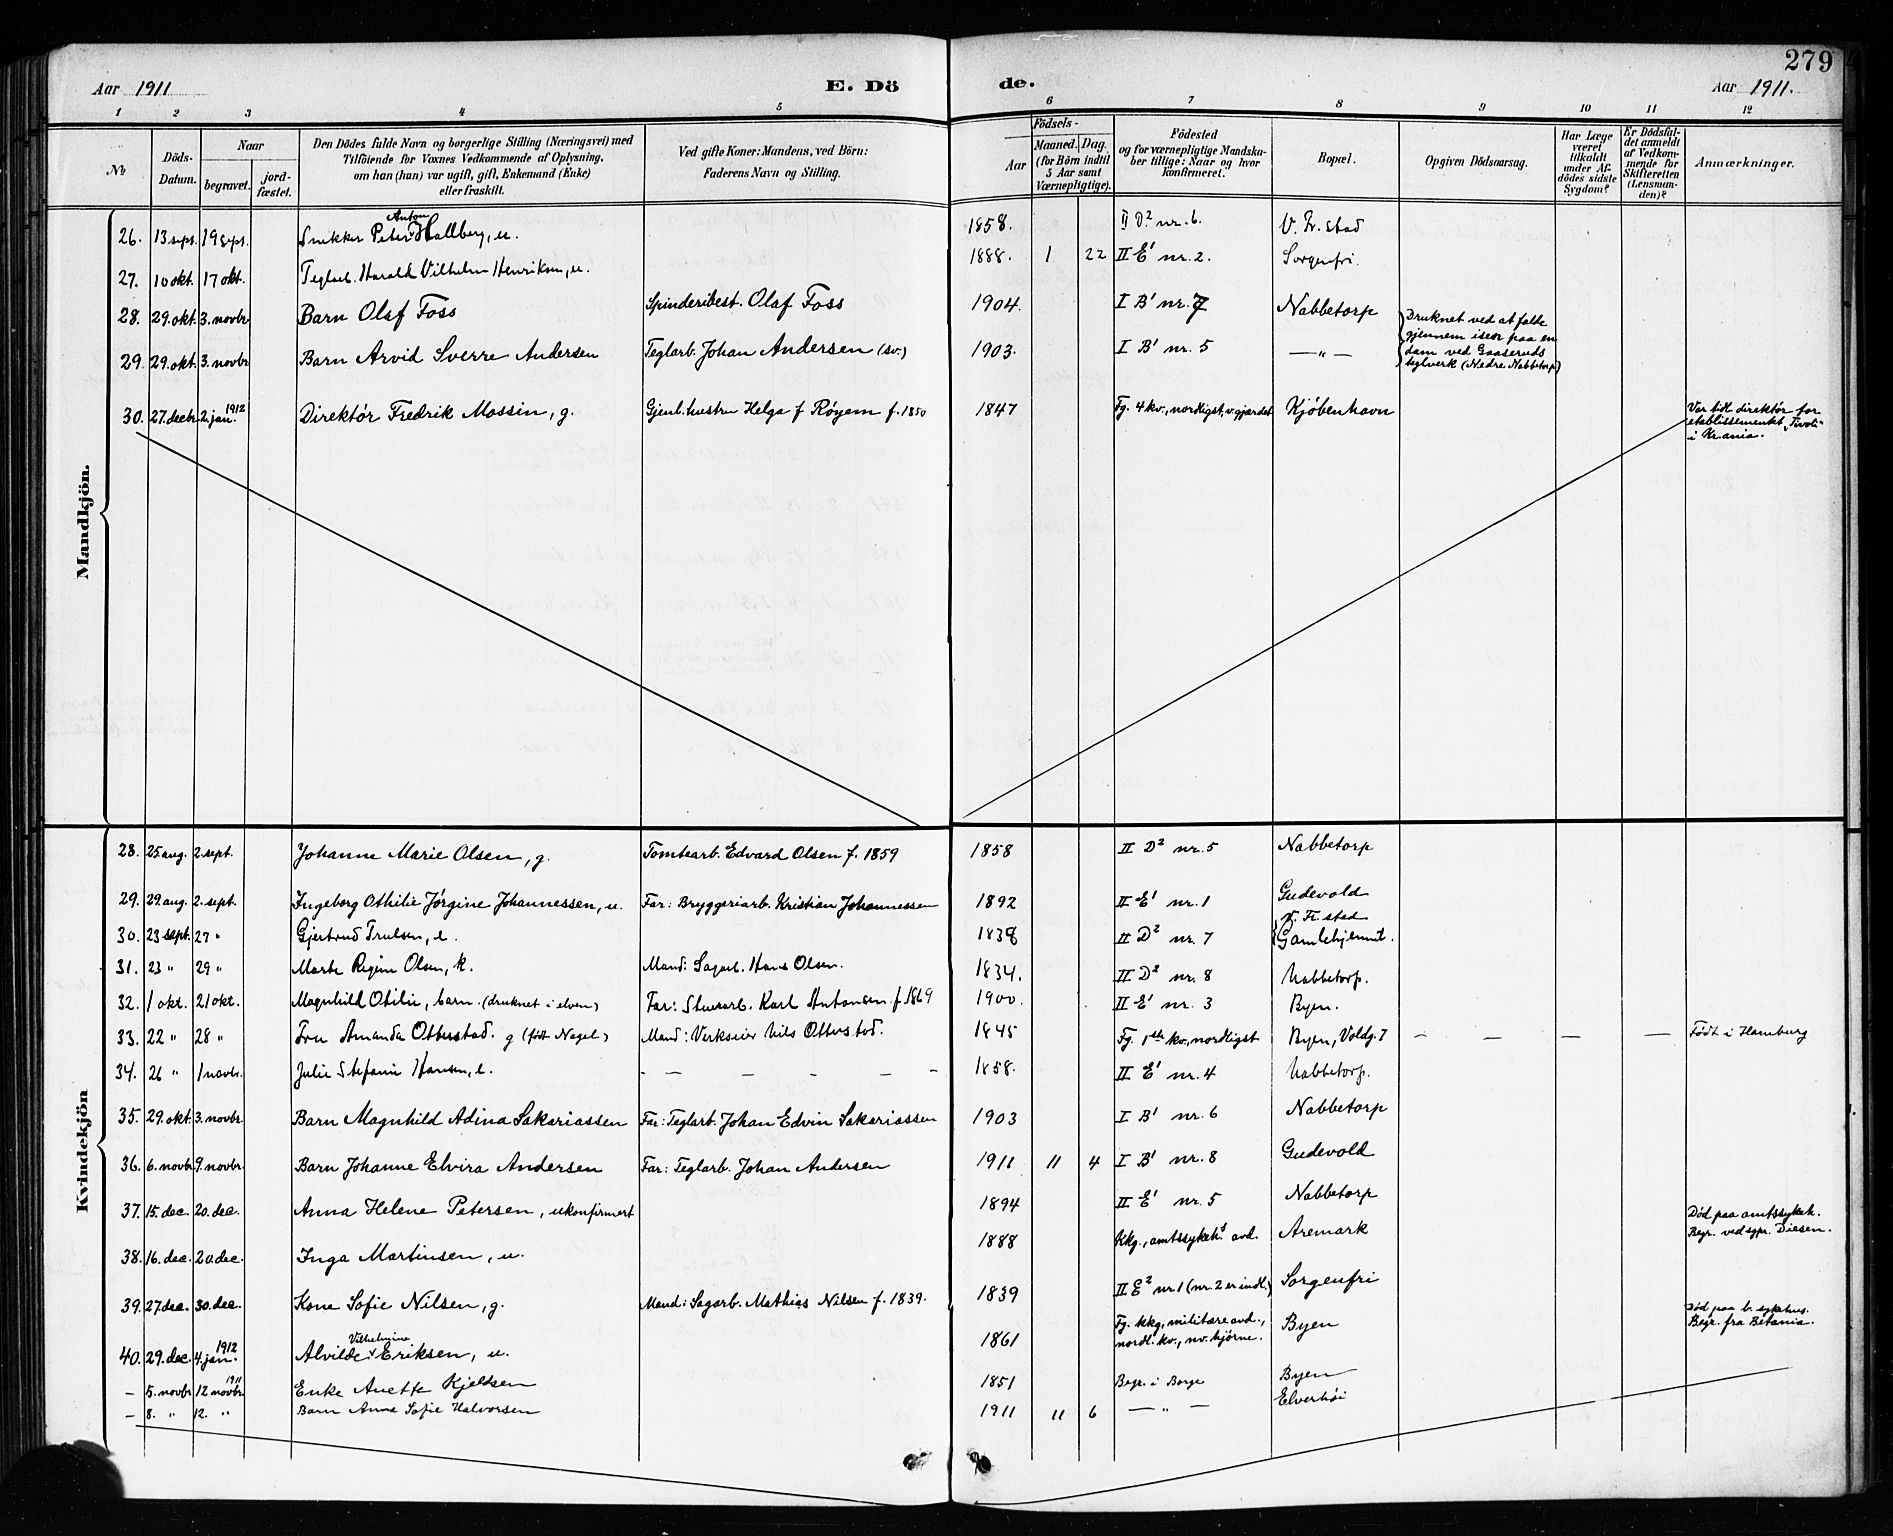 279
Aar 1911
E. Dö
de.
Aar 1911.
1 2 3 4 5 6 7 8 9 10 11 12
No
Döds-
Datum.
Naar
begravet.
jord-
fæstet.
Den Dödes fulde Navn og borgerlige Stilling (Næringsvei) med
Tilföiende for Voxnes Vedkommende af Oplysning,
om han (hun) var ugift, gift, Enkemand (Enke)
eller fraskilt.
Ved gifte Koner: Mandens, ved Börn:
Faderens Navn og Stilling.
Födsels-
Aar
Maaned. Dag
(for Börn indtil
5 Aar samt
Værnepligtige).
Födested
og for værnepligtige Mandska-
ber tillige: Naar og hvor
konfirmeret.
Bopæl.
Opgiven Dödsaarsag.
Har Læge
været
tilkaldt
under Af-
dödes sidste
Sygdom?
Er Dödsfal-
det anmeldt
af Vedkom-
mende for
Skifteretten
(Lensman-
den)?
Anmærkninger.
Mandkjön.
26. 13 sept. 19 sept. Snikker Peter Anton Hallberg, u. 1858. II D² nr. 6. V. Fr.stad
27. 10 okt. 17 okt. Teglarb. Harald Vilhelm Henriksen, u. 1888. 1 22 II E¹ nr. 2. Sorgenfri.
28. 29. okt. 3. novbr. Barn Olaf Foss Spinderibest. Olaf Foss 1904. I B¹ nr. 7 Nabbetorp
29. 29. okt. 3. novbr Barn Arvid Sverre Andersen Teglarb. Johan Andersen (sv.) 1903. I B¹ nr. 5 — „ —
Druknet ved at falde
gjennem isen paa en
dam ved Gaaseruds
teglverk (Nedre Nabbetorp)
30. 27. decbr. 2. jan. 1912 Direktör Fredrik Mossin, g. Gjenl. hustru Helga f Røyem f. 1850 1847 Fg. 4 kv., nordligst, v. gjærdet Kjöbenhavn
Var tidl. direktör for
etablissementet „Tivoli"
i Kr.ania.
Kvindekjön
28. 25 aug. 2. sept. Johanne Marie Olsen, g. Tomtearb. Edvard Olsen f. 1859 1858 II D² nr. 5 Nabbetorp
29. 29 aug. 2. sept. Ingeborg Othilie Jørgine Johannessen, u. Far: Bryggeriarb. Kristian Johannessen 1892 II E¹ nr. 1 Gudevold
30. 23 sept. 27 „ Gjertrud Trulsen, e. 1838 II D² nr. 7 V. Fr.stad
Gamlehjemmet.
31. 23 „ 29 „ Marte Regine Olsen, k. Mand: Sagarb. Hans Olsen. 1834. II D² nr. 8 Nabbetorp.
32. 1 okt. 21 okt. Magnhild Otilie, barn. (druknet i elven) Far: Stuerarb. Karl Antonsen f 1869 1900. II E¹ nr. 3 Byen.
33. 22 „ 28 „ Fru Amanda Otterstad. g (födt Nagel) Mand: Verkseier Nils Otterstad. 1845 Fg. 1ste kv., nordligst Byen, Voldg. 7 — — — — Födt i Hamburg
34. 26 „ 1 novbr. Julie Stefanie Hansen, e. — — — — — 1858. II E¹ nr. 4 Nabbetorp.
35. 29. okt. 3. novbr. Barn Magnhild Adina Sakariassen Far: Teglarb. Johan Edvin Sakariassen 1903 I B¹ nr. 6 Nabbetorp
36. 6. novbr. 9. novbr. Barn Johanne Elvira Andersen Far: Teglarb. Johan Andersen 1911 11 4 I B¹ nr. 8 Gudevold
37. 15. dec. 20. dec. Anna Helene Petersen, ukonfirmert 1894 II E¹ nr. 5 Nabbetorp
38. 16. dec. 20. dec. Inga Martinsen, u. 1888 Kkg., amtssykeh.s avd. Aremark
Död paa amtssykeh.
Begr. ved sgpr. Diesen.
39. 27. dec. 30. dec. Kone Sofie Nilsen, g. Mand: Sagarb. Mathias Nilsen f. 1839. 1839 II E² nr 1 (nr. 2 er indl.) Sorgenfri
40. 29. dec. 4. jan. 1912 Alvilde Vilhelmine Eriksen, u. 1861 Fg. kkg, militære avd.,
nordl. kv., nv. hjørne. Byen
Död paa b. sykehus.
Begr. fra Betania.
— 5. novbr 12 novbr 1911 Enke Anette Kjeldsen 1851 Begr. i Borge Byen
— 8. „ 12. „ Barn Anna Sofie Halvorsen 1911 11 6 — „ — Elverhöi